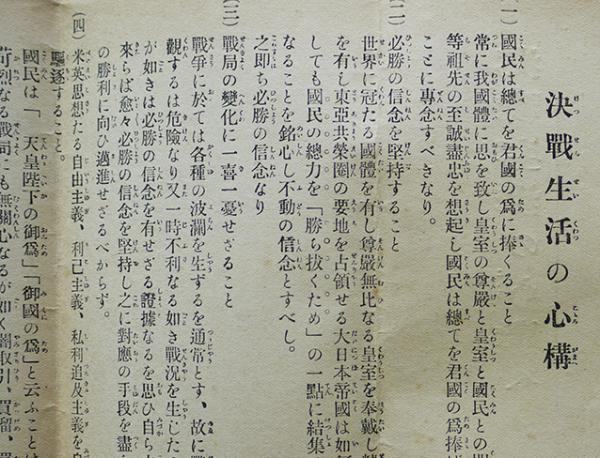 決戰生活の心構
(一) 國民は總てを君國の爲に捧くること
常に我國體に思を致し皇室の尊嚴と皇室と國民との
等祖先の至誠盡忠を想起し國民は總てを君國の爲捧
ことに專念すべきなり。
(二) 必勝の信念を堅持すること
世界に冠たる國體を有し尊嚴無比なる皇室を奉戴し
を有し東亞共榮圈の要地を占領せる大日本帝國は如
しても國民の總力を「勝ち拔くため」の一點に結集
なることを銘心し不動の信念とすべし。
之即ち必勝の信念なり
(三) 戰局の變化に一喜一憂せざること
戰爭に於ては各種の波瀾を生ずるを通常とす、故に
觀するは危險なり又一時不利なる如き戰況を生じた
が如きは必勝の信念を有せざる證據なるを思ひ自ら
來らば愈々必勝の信念を堅持し之に對應の手段を盡
の勝利に向ひ邁進せざるべからず。
(四) 米英思想たる自由主義、利己主義、私利追及主義を
驅逐すること。
國民は「、天皇陛下の御爲」「御國の爲」と云ふことは
苛烈なる戰局にも無關心なるが如く闇取引、買溜、